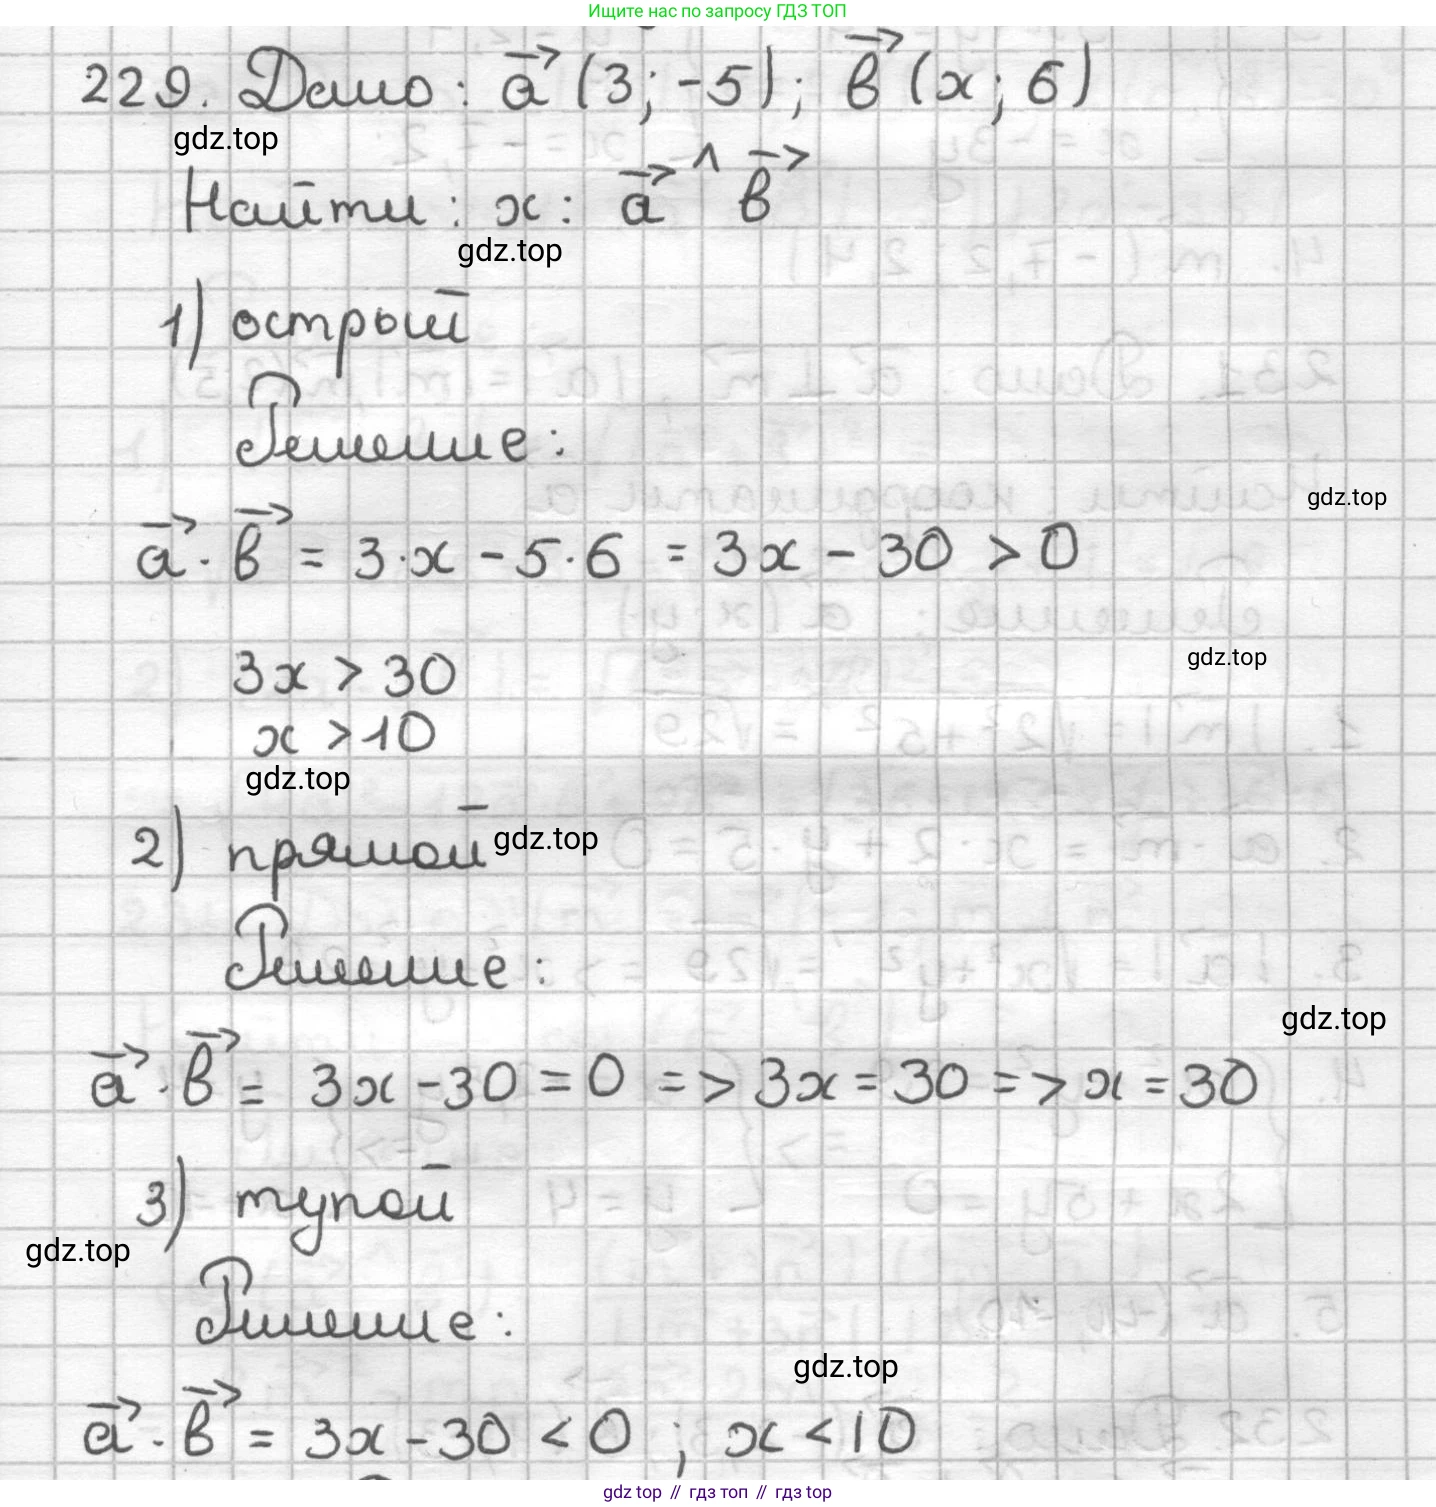 Ищите нас по запросу ГДЗ ТОП
229. Дано: a⃗ (3; -5); b⃗ (x; 6)
gdz.top
Найти: x: a⃗ ^ b⃗
gdz.top
1) острый
Решение:
gdz.top
a⃗ · b⃗ = 3·x - 5·6 = 3x - 30 > 0
gdz.top
3x > 30
x > 10
gdz.top
2) прямой gdz.top
Решение:
gdz.top
a⃗ · b⃗ = 3x - 30 = 0 => 3x = 30 => x = 30
3) тупой
gdz.top
Решение:
gdz.top
a⃗ · b⃗ = 3x - 30 < 0 ; x < 10
gdz top // гдз топ // гдз top